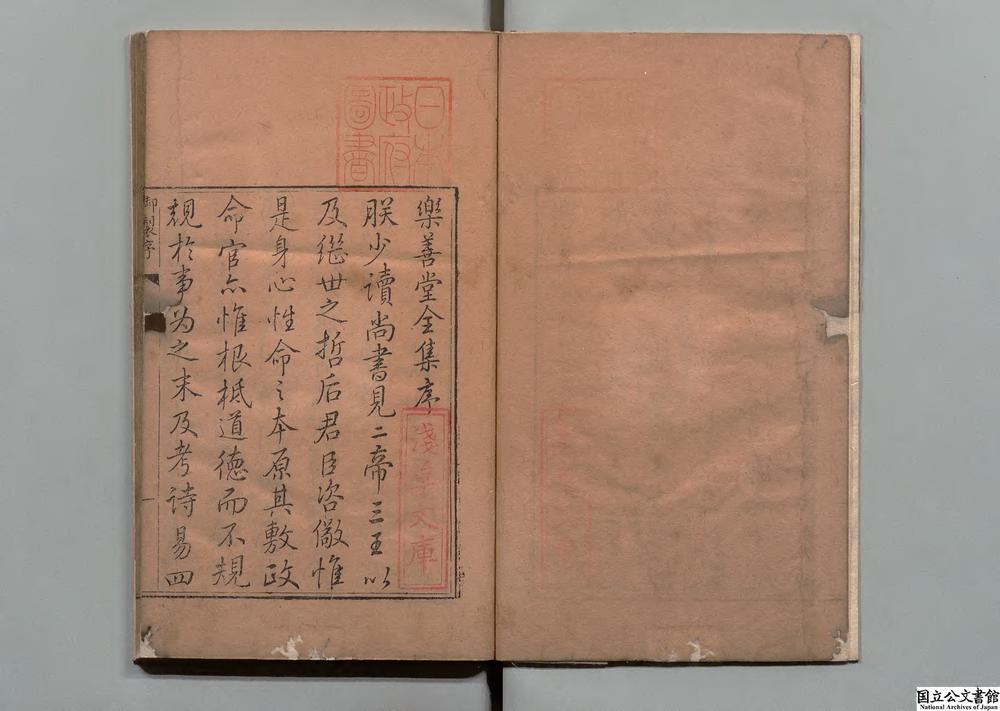 樂善堂全集序
朕少讀尚書見二帝三王以
及繼世之哲后君臣咨儆惟
是身心性命之本原其敷政
命官亦惟根柢道德而不規
規於事為之末及考诗易四
御製序
一
日本
政府
圖書
淺草文庫
国立公文書館
National Archives of Japan